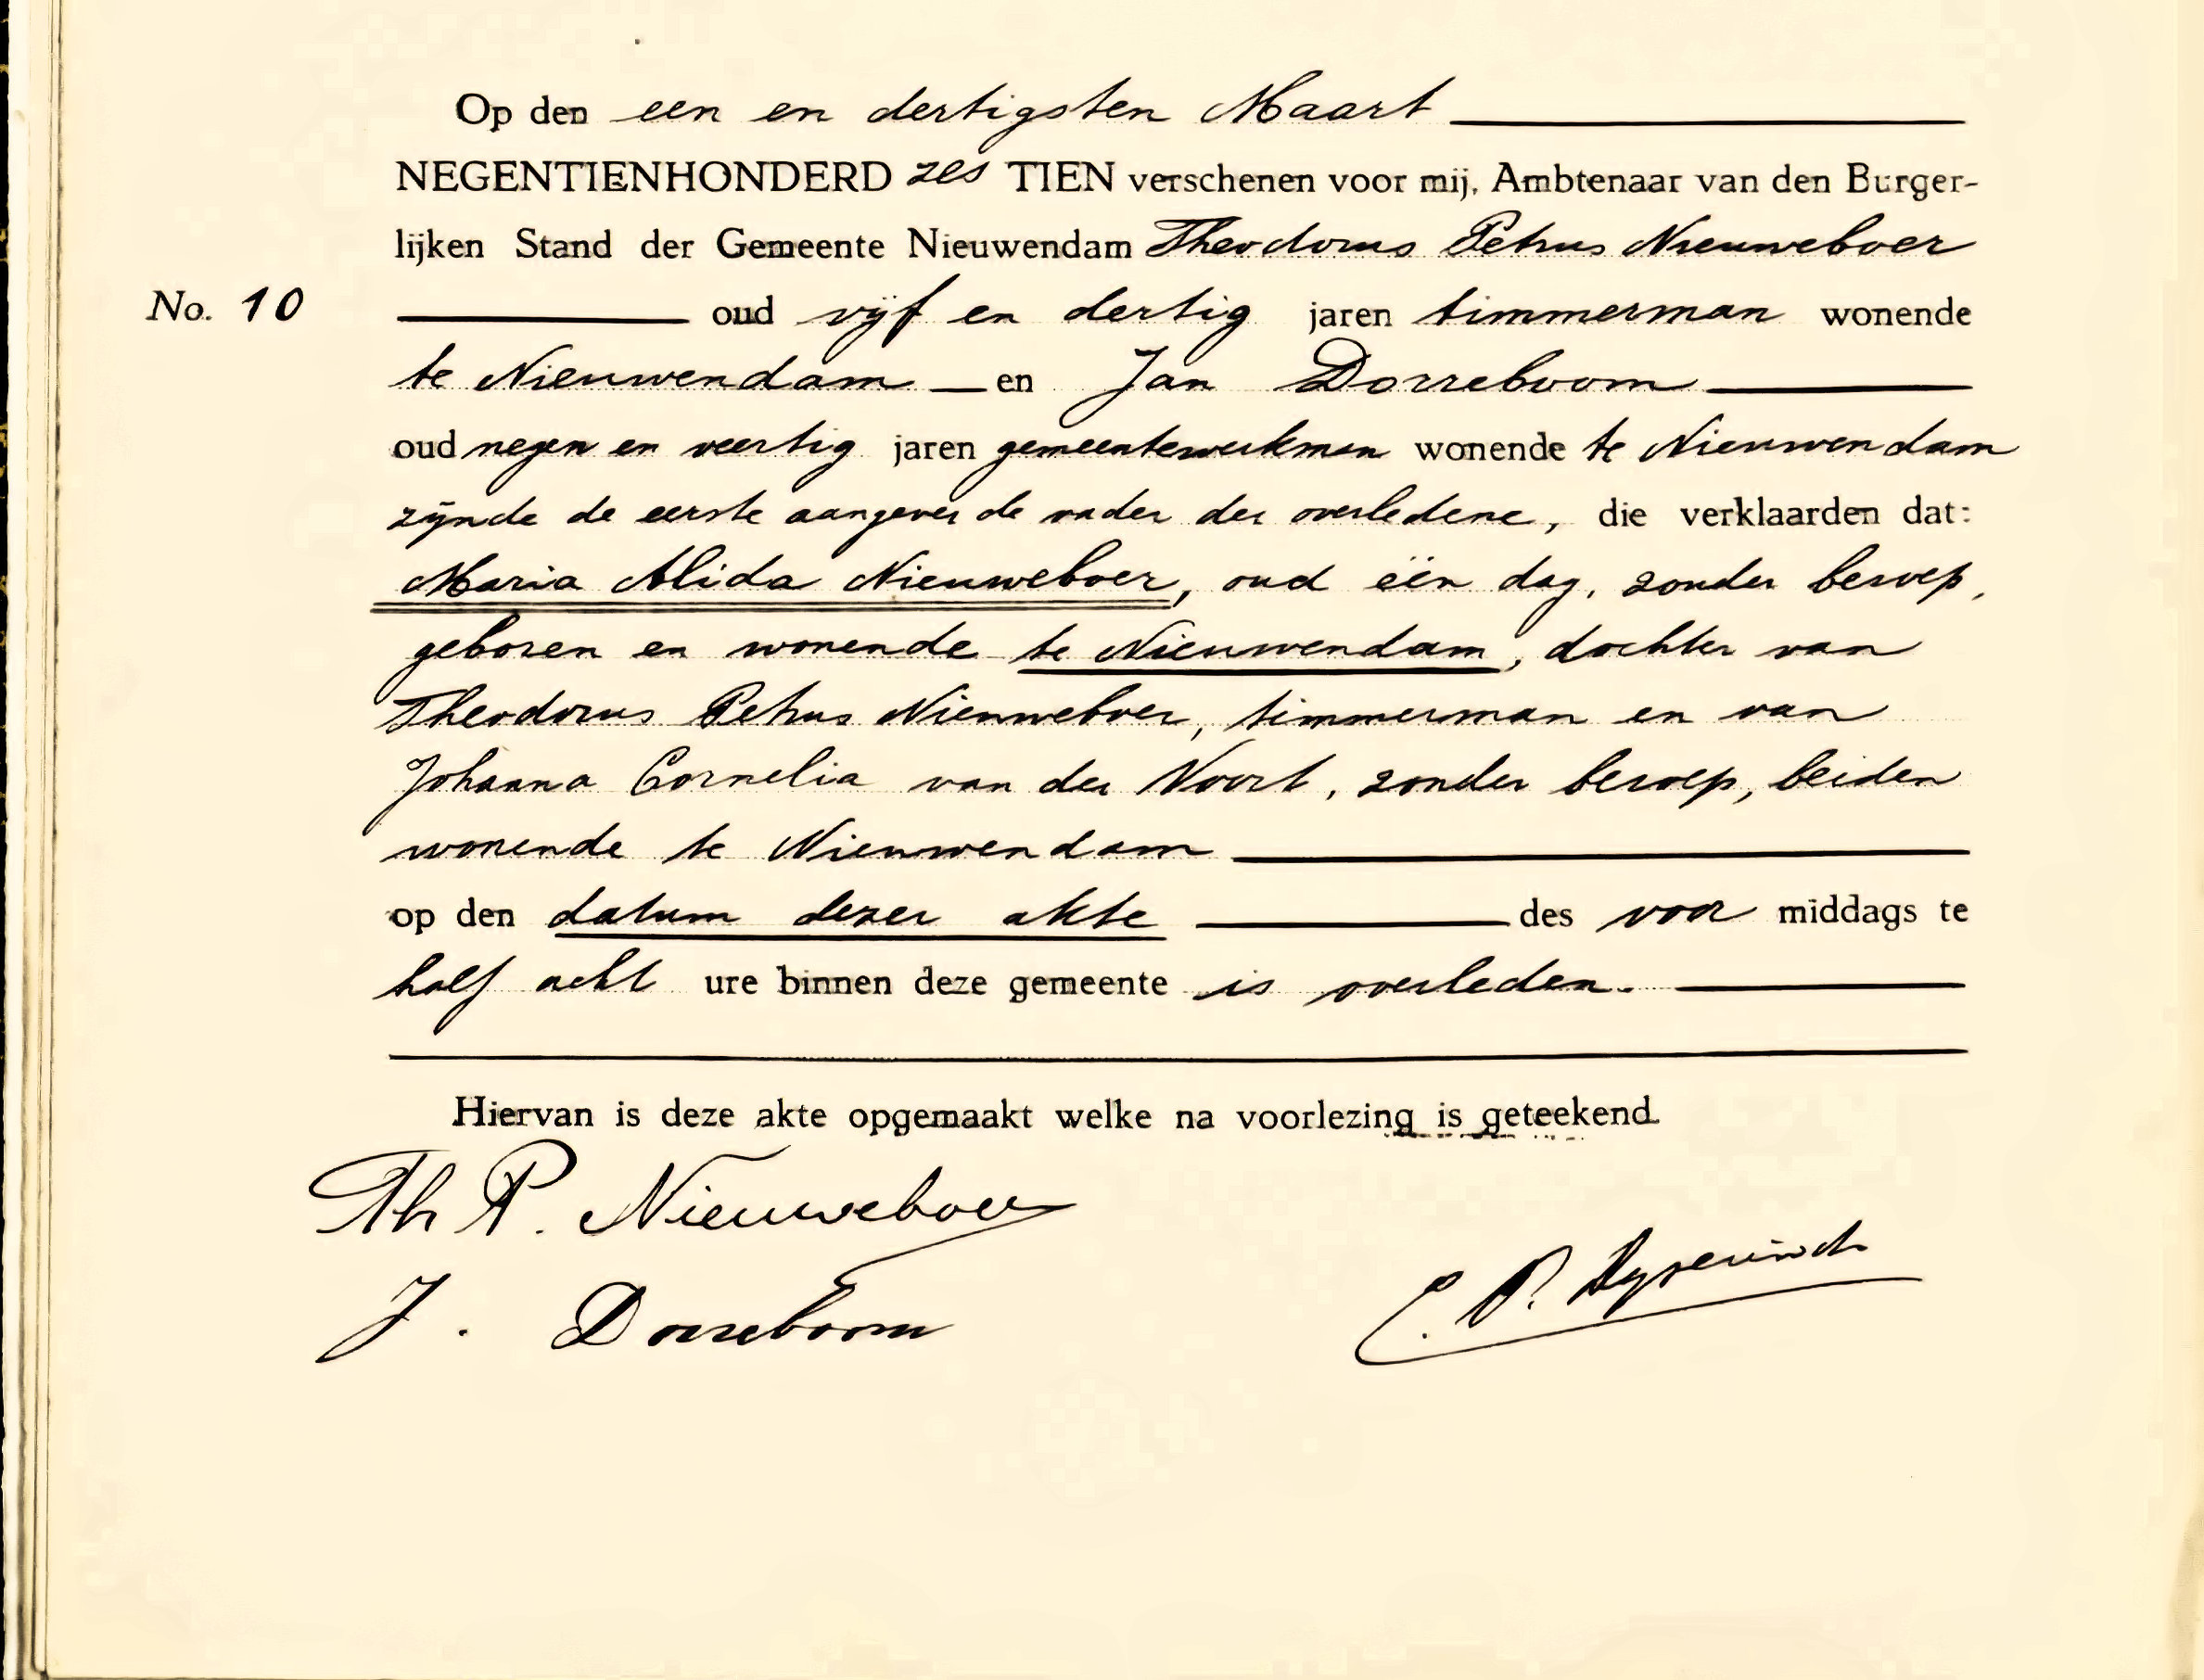 Op den een en dertigsten Maart
NEGENTIENHONDERD zes TIEN verschenen voor mij, Ambtenaar van den Burger-
lijken Stand der Gemeente Nieuwendam Theodorus Petrus Nieuweboer
No. 10 oud vijf en dertig jaren timmerman wonende
te Nieuwendam en Jan Dorreboom
oud negen en veertig jaren gemeentewerkman wonende te Nieuwendam
zijnde de eerste aangever de vader der overledene, die verklaarden dat:
Maria Alida Nieuweboer, oud één dag, zonder beroep,
geboren en wonende te Nieuwendam, dochter van
Theodorus Petrus Nieuweboer, timmerman en van
Johanna Cornelia van der Voort, zonder beroep, beiden
wonende te Nieuwendam
op den datum dezer akte des voor middags te
half acht ure binnen deze gemeente is overleden.
Hiervan is deze akte opgemaakt welke na voorlezing is geteekend.
Th P. Nieuweboer
J. Dorreboom
C. P.